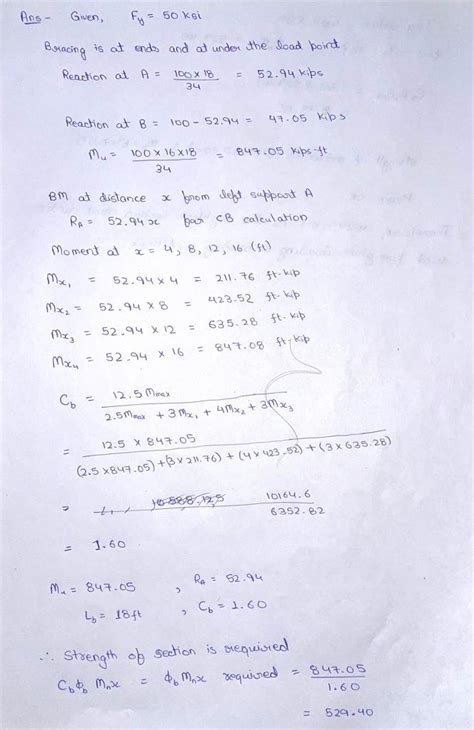 Ans - Given, Fy = 50 ksi
Bracing is at ends and at under the load point
Reaction at A = 100 x 18 / 34 = 52.94 kips
Reaction at B = 100 - 52.94 = 47.05 kips
Mu = 100 x 16 x 18 / 34 = 847.05 kips-ft
BM at distance x from left support A
RA = 52.94x for CB calculation
Moment at x = 4, 8, 12, 16 (ft)
Mx1 = 52.94 x 4 = 211.76 ft-kip
Mx2 = 52.94 x 8 = 423.52 ft-kip
Mx3 = 52.94 x 12 = 635.28 ft-kip
Mx4 = 52.94 x 16 = 847.08 ft-kip
Cb = 12.5 Mmax / 2.5Mmax + 3Mx1 + 4Mx2 + 3Mx3
= 12.5 x 847.05 / (2.5 x 847.05) + (3 x 211.76) + (4 x 423.52) + (3 x 635.28)
= 10164.6 / 6352.82
= 1.60
Mu = 847.05 , RA = 52.94
Lb = 18ft , Cb = 1.60
∴ Strength of section is required
Cb ϕb Mnx = ϕb Mnx required = 847.05 / 1.60
= 529.40